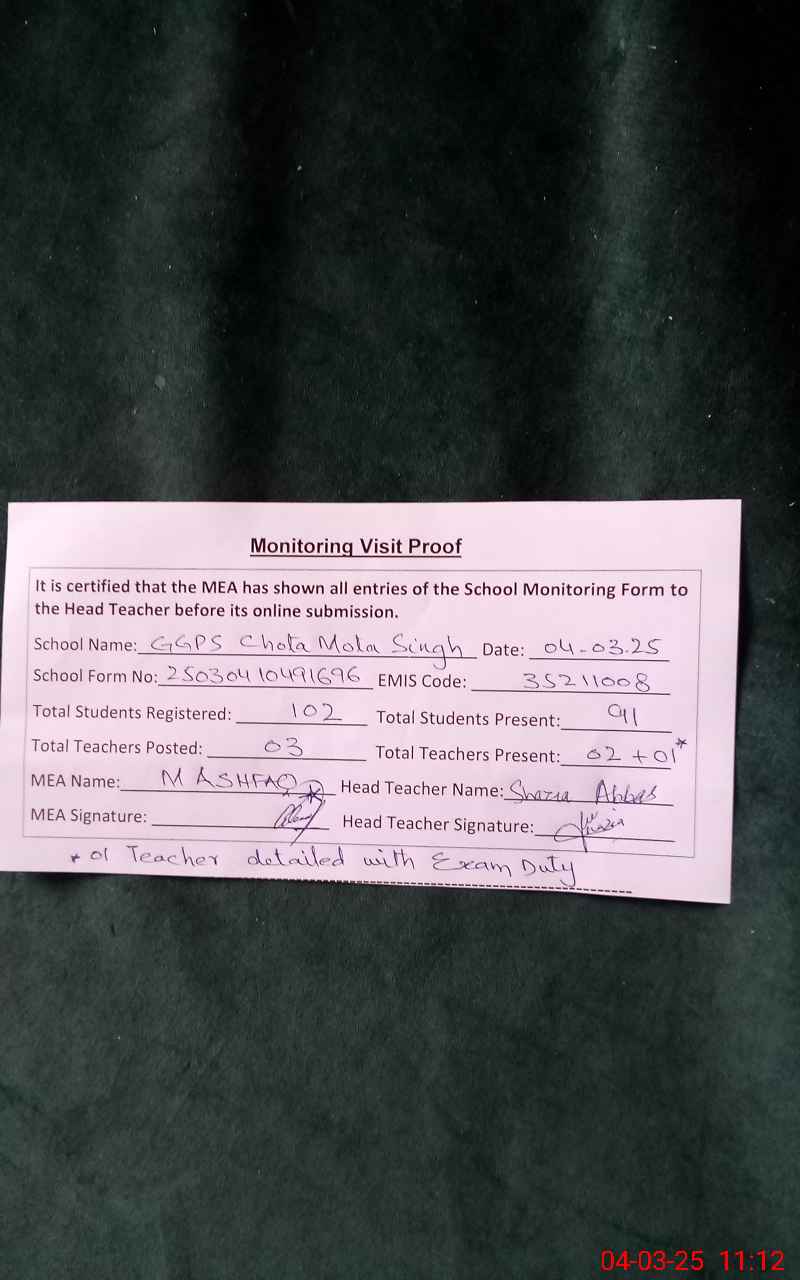 Monitoring Visit Proof
It is certified that the MEA has shown all entries of the School Monitoring Form to
the Head Teacher before its online submission.
School Name: GGPS Chota Mota Singh Date: 04-03-25
School Form No: 25030410491696 EMIS Code: 35211008
Total Students Registered: 102 Total Students Present: 91
Total Teachers Posted: 03 Total Teachers Present: 02 + 01*
MEA Name: M ASHFAQ Head Teacher Name: Shazia Abbas
MEA Signature: Head Teacher Signature: Shazia
* 01 Teacher detailed with Exam Duty
04-03-25 11:12